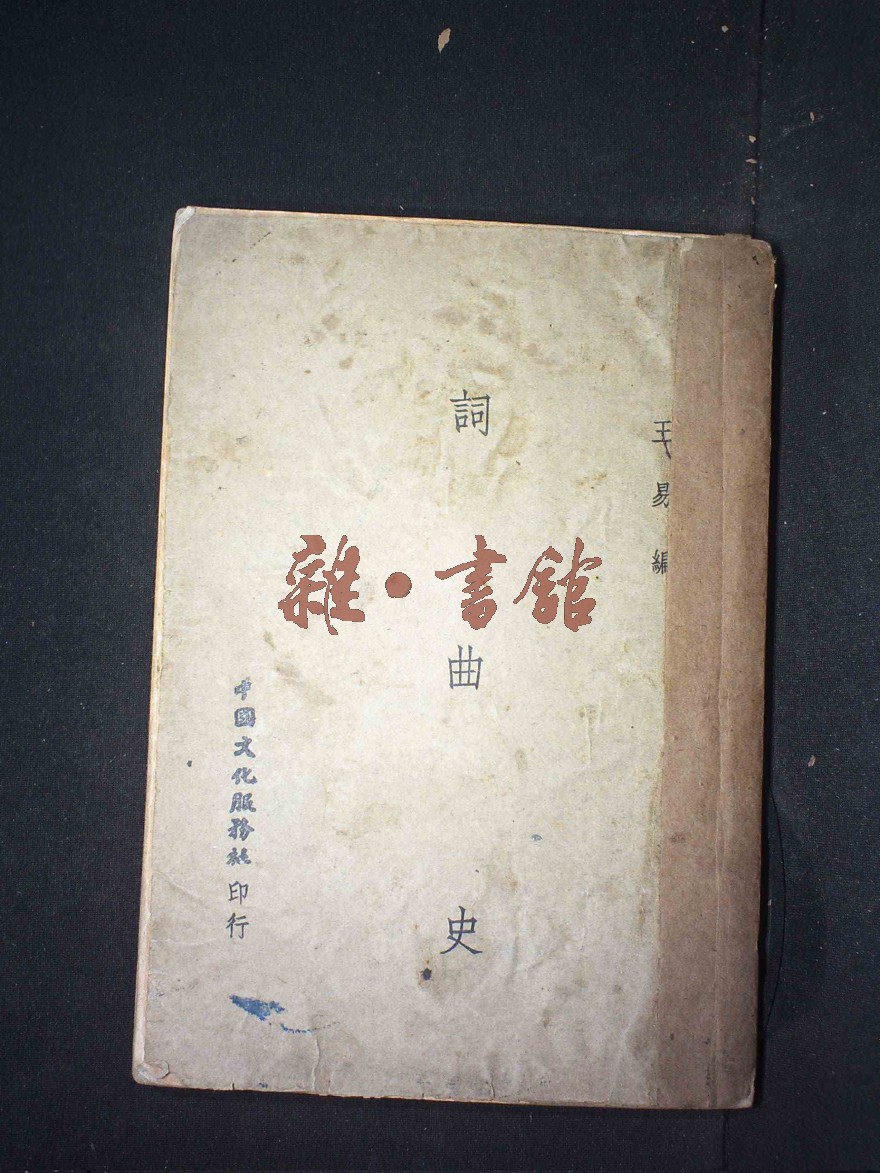 王易編
詞曲史
中國文化服務社印行
雜·書館